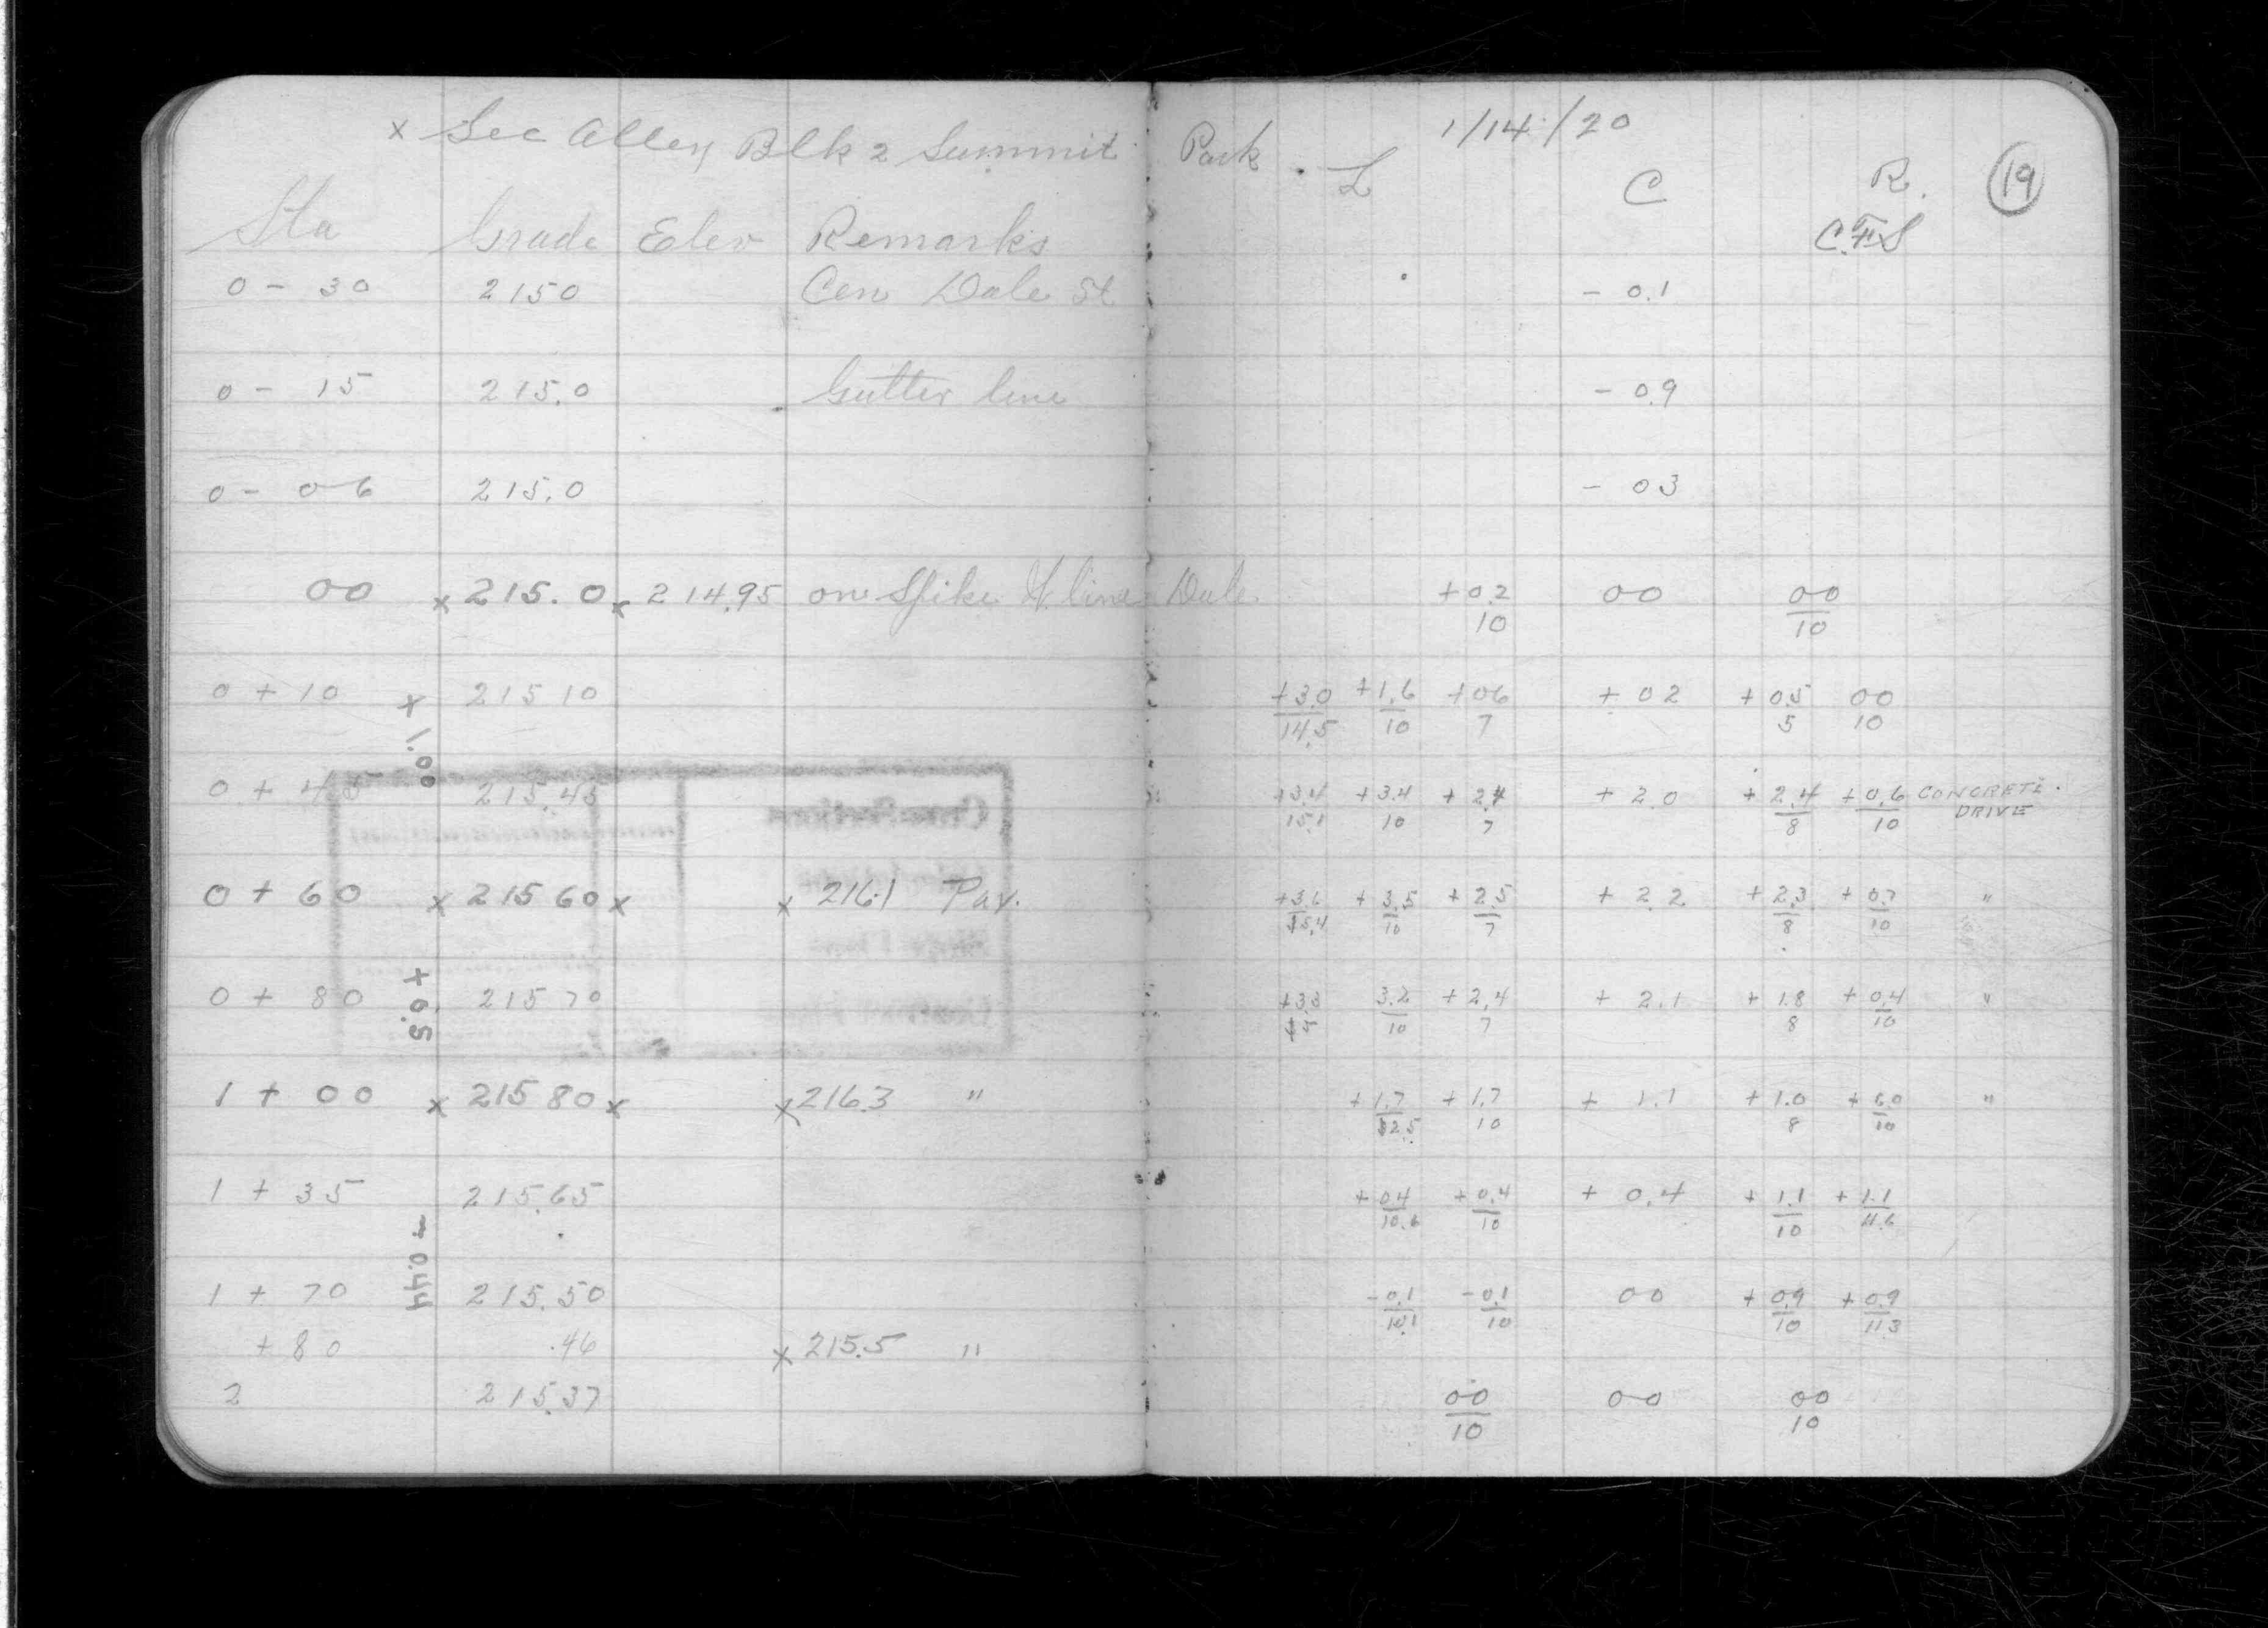 x Sec Alley Blk 2 Summit Park 1/14/20
L C R. 19
Sta Grade Elev Remarks C.F.S
0 - 30 2150 Cen Dale St - 0.1
0 - 15 215.0 Gutter line - 0.9
0 - 06 215.0 - 03
00 x 215.0 x 214.95 on Spike line Dale +0.2/10 00 00/10
0 + 10 215 10 +3.0/14.5 +1.6/10 +06/7 + 02 + 0.5/5 00/10
x 1.00
0 + 45 215.45 +3.4/15.1 +3.4/10 + 2.4/7 + 2.0 + 2.4/8 + 0.6/10 CONCRETE DRIVE
0 + 60 x 215 60 x x 216.1 Pav. +3.6/15.4 + 3.5/10 + 2.5/7 + 2.2 + 2.3/8 + 0.7/10 "
+ 0.5
0 + 80 215 70 +3.3/15 3.2/10 + 2.4/7 + 2.1 + 1.8/8 + 0.4/10 "
1 + 00 x 215 80 x x 216.3 " + 1.7/12.5 + 1.7/10 + 1.1 + 1.0/8 + 0.0/10 "
1 + 35 215.65 + 0.4/10.6 + 0.4/10 + 0.4 + 1.1/10 + 1.1/11.6
+ 0.44
1 + 70 215.50 - 0.1/10.1 - 0.1/10 00 + 0.9/10 + 0.9/11.3
+ 80 .46 x 215.5 "
2 215.37 00/10 00 00/10